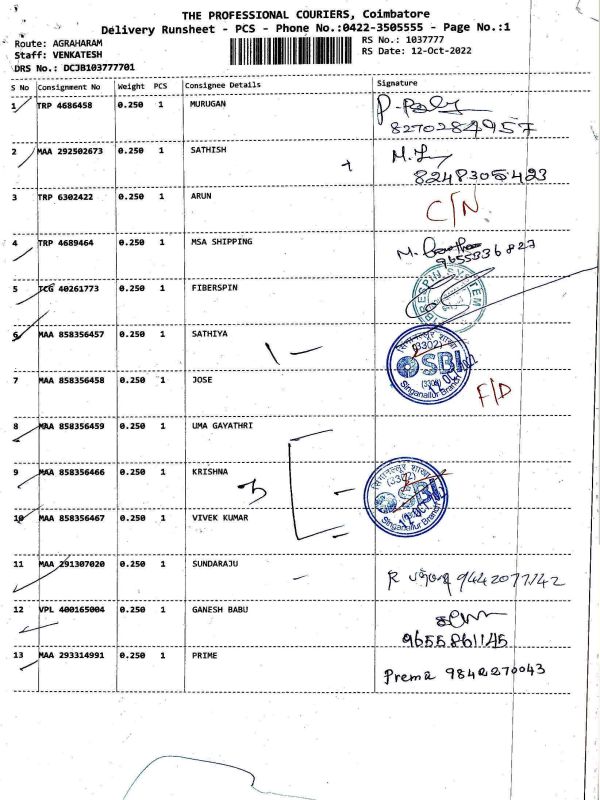 THE PROFESSIONAL COURIERS, Coimbatore
Delivery Runsheet - PCS - Phone No.:0422-3505555 - Page No.:1
Route: AGRAHARAM
Staff: VENKATESH
DRS No.: DCJB103777701
RS No.: 1037777
RS Date: 12-Oct-2022
S No Consignment No Weight PCS Consignee Details Signature
1 TRP 4686458 0.250 1 MURUGAN
8270284957
2 MAA 292502673 0.250 1 SATHISH
8248305423
3 TRP 6302422 0.250 1 ARUN C/N
4 TRP 4689464 0.250 1 MSA SHIPPING
9655336827
5 TCG 40261773 0.250 1 FIBERSPIN
6 MAA 858356457 0.250 1 SATHIYA 1 -
(3302)
SBI
Singanallur Branch
7 MAA 858356458 0.250 1 JOSE F/D
8 MAA 858356459 0.250 1 UMA GAYATHRI
9 MAA 858356466 0.250 1 KRISHNA
(3302)
SBI
Singanallur Branch
10 MAA 858356467 0.250 1 VIVEK KUMAR
11 MAA 291307020 0.250 1 SUNDARAJU
12 VPL 400165004 0.250 1 GANESH BABU
9655861145
13 MAA 293314991 0.250 1 PRIME
Prema 9842270043